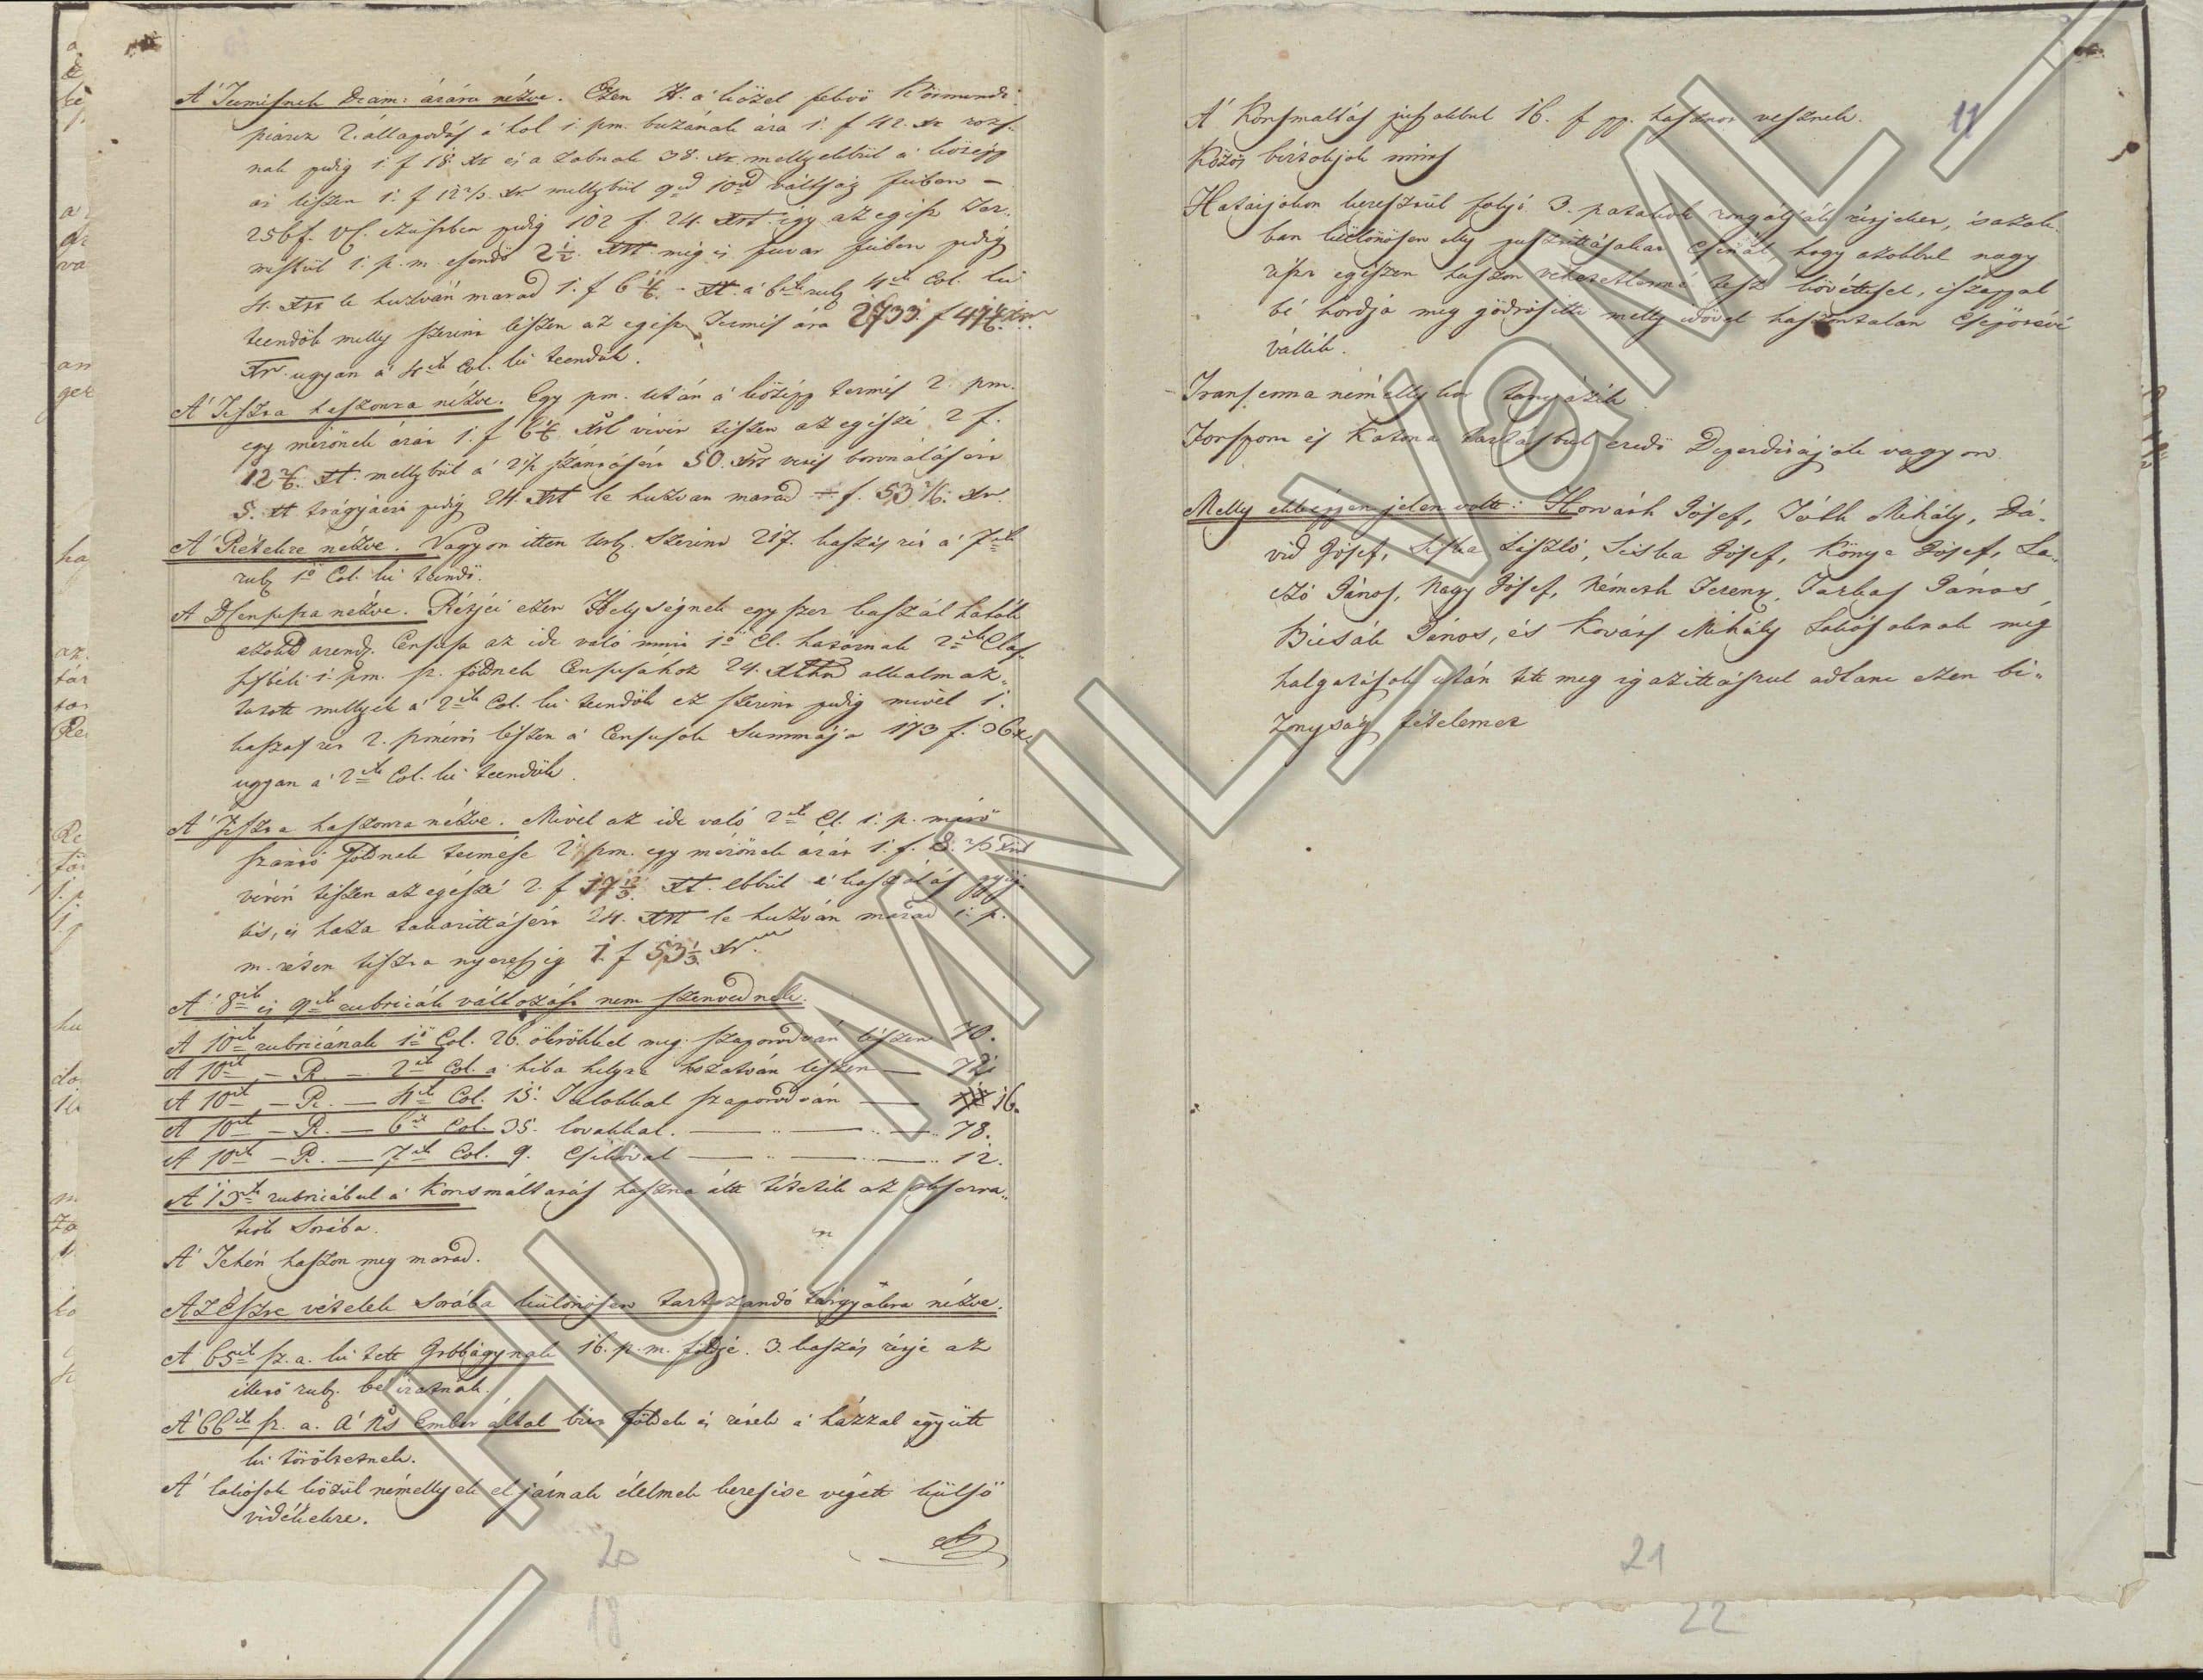 A' Termésnek Deam: árára nézve. Ezen H. a' közel fekvö Körmendi
piarcz 2. állapodás a' hol 1. pm. buzának ára 1. f 42. xr rozs-
nak pedig 1 f 18. xr és a zabnak 38. xr. mellyekbül a' középp
ár lészen 1. f 12 2/3. xr mellybül
256 f. ezüstben pedig 102 f. 24. xrt. így az egész Ter-
mésbül 1. p. m. esendö 2 1/2. xrt még is fuvar fejében pedig
4. xrt le huzván marad 1. f 6 1/6. xr. a' 6ik rub. 4ik Col. ki
teendök melly szerint lészen az egész Termés ára 2733. f 41
Xr. ugyan a' 4ik Col. ki teendök.
A' Tiszta haszonra nézve. Egy pm. után a' középp termés 2. pm.
egy mérönek árár 1. f 6 1/6 xrl vévén tészen az egészé 2 f.
12 2/6. xt. mellybül a' szántásért 50. xrt vetés boronálásért
5. xt trágyáért pedig 24 xrt le huzvan marad f. 53 2/6. xr.
A' Rétekre nézve. Vagyon itten Urb. szerint 217. kaszás rét a' 7ik
rub. 1ö Col. ki teendö.
A Censusra nézve. Rétjei ezen Helységnek egyszer kaszálhatók
azokd arend. Censusa az ide való mint 1ö Cl. határnak 2ik Clas-
sisbéli 1. pm. sz. földnek Censusához 24. xrhoz alkalmaz-
tatott mellyek a' 2ik Col. ki teendök ez szerint pedig mivel 1.
kaszás rét 2. pmérös lészen a' Censusok Summája 173 f. 36 x.
ugyan a' 2ik Col. ki teendök.
A' Tiszta haszonra nézve. Mivel az ide való 2ik Cl. 1. p. mérö
szántó földnek termése 2 pm. egy mérönek árár 1. f. 8. 2/3 xrd
vévén tészen az egészé 2. f 17 1/3. xt. ebbül a' kaszálás gyüj-
tés, és haza takarittásért 24. xrt le huzván marad 1. p.
m. réten tiszta nyereség 1. f 53 1/3. xr.
A' 8ik és 9ik rubricák változást nem szenvednek.
A 10ik rubricának 1ö Col. 26. ökrökkel meg szaporodván lészen 70.
A 10ik – R. – 2ik Col. a hiba helyre hozatván lészen — 72
A 10ik – R. – 4ik Col. 15. Tulokkal szaporodván — 16.
A 10ik – R. – 6ik Col. 35. lovakkal. — 78.
A 10ik – R. – 7ik Col. 9. Csikóval — 12.
A 13ik rubricábul a' Korcsmáltatás haszna által tétetik az observa-
tiók Sorába.
A' Tehén haszon meg marad.
Az Észre vételek Sorába különösen tartozandó tárgyakra nézve.
A 65ik sz. a. ki tett Grobságynak 16. p. m. földje. 3. kaszás rétje az
illetö rub. be iratnak.
A' 66ik sz. a. A' Ns Ember által birt földek és rétek a' házzal együtt
ki töröltetnek.
A' lakosok közül némellyek el járnak élelmek keresése végett külsö
vidékekre.
20
18
11
A' Korcsmáltás jussabbul 16. f pp. hasznot vesznek.
Közös birtokjok nints
Határjokon keresztül folyó 3. patakok rongálják rétjeket, is azok-
ban különösen olly pusztittásokat csinál, hogy azokbul nagy
rész egészen haszon vehetetlenné tesz kövéttsel, iszappal
bé hordja meg gödrösítti melly idövel haszontalan Cseporévé
vállik.
Transenna némellykor tanyázik
Forspont és Katona tartásbul eredö Deperditájok vagyon.
Melly ekképpen jelen voltt: Horváth Jósef, Tóth Mihály, Dá-
vid Jósef, Siska László, Siska Jósef, Könye Jósef, La-
czó János, Nagy Jósef, Németh Ferencz, Farkas János,
Bicsák János, és Kováts Mihály Lakósoknak meg
halgatások után tett meg igazittásrul adtam ezen bi-
zonyság tételemet
21
22